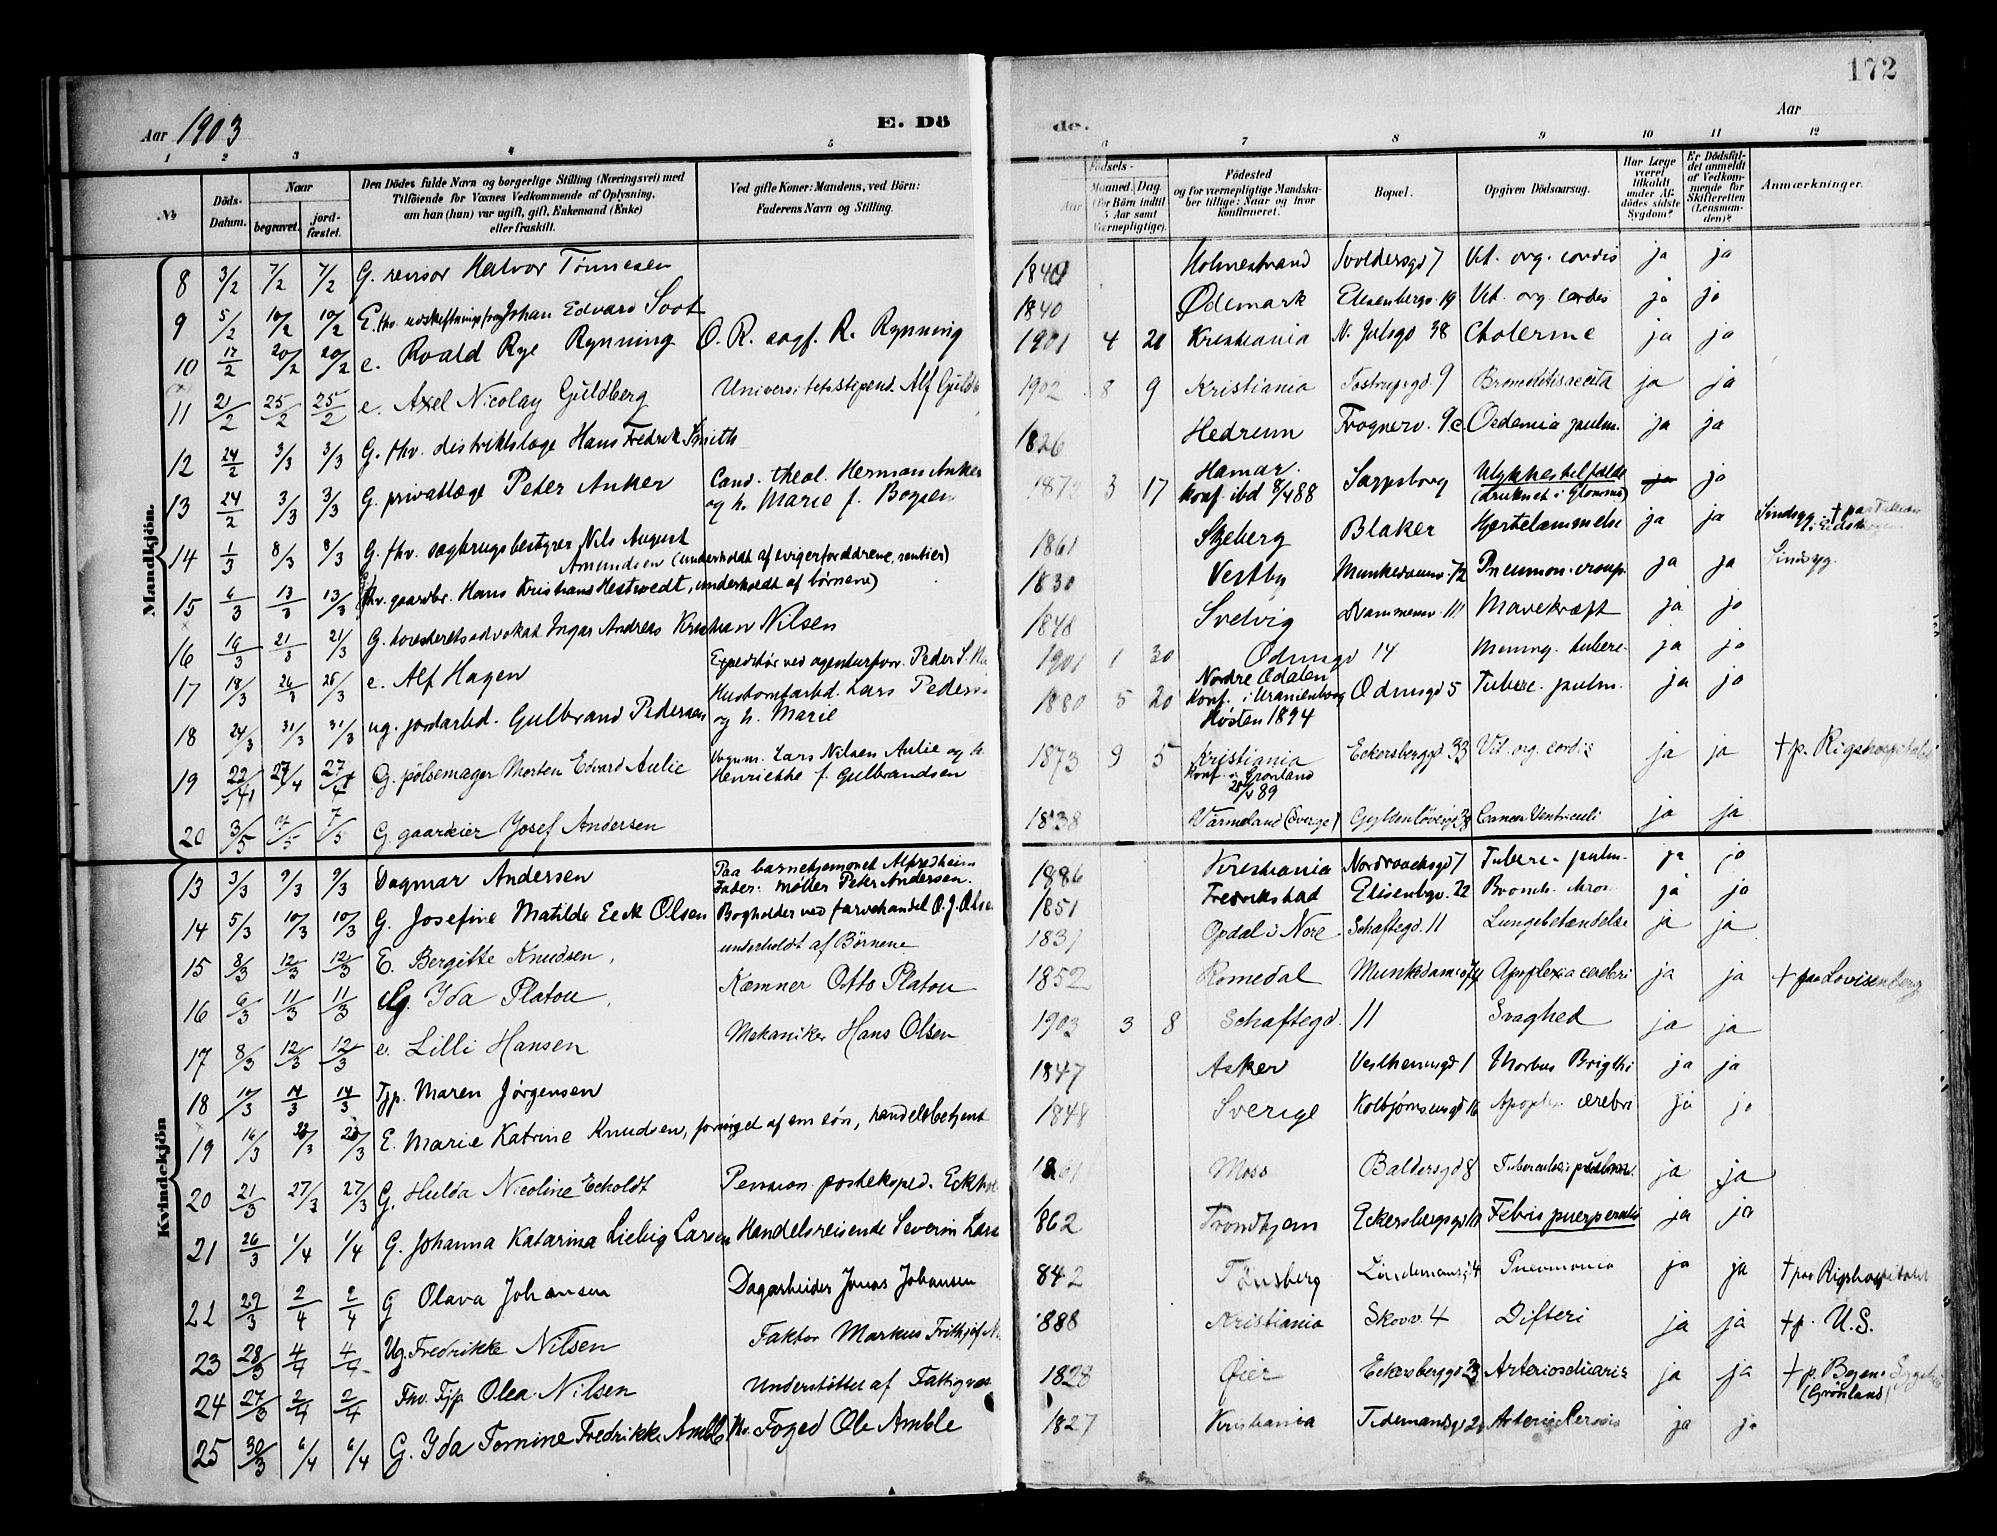 172
Aar 1903
E. Dö
de.
Aar
1 2 3 4 5 6 7 8 9 10 11 12
№
Döds-Datum.
Naar
begravet.
jord-fæstet.
Den Dödes fulde Navn og borgerlige Stilling (Næringsvei) med
Tilföiende for Voxnes Vedkommende af Oplysning,
om han (hun) var ugift, gift, Enkemand (Enke)
eller fraskilt.
Ved gifte Koner: Mandens, ved Börn:
Faderens Navn og Stilling.
Födsels-
Aar
Maaned. Dag.
(for Börn indtil
5 Aar samt
Værnepligtige).
Födested
og for værnepligtige Mandska-
ber tillige: Naar og hvor
konfirmeret.
Bopæl.
Opgiven Dödsaarsag.
Har Læge
været
tilkaldt
under Af-
dödes sidste
Sygdom?
Er Dödsfal-
det anmeldt
af Vedkom-
mende for
Skifteretten
(Lensman-
den)?
Anmærkninger.
Mandkjön.
8 3/2 7/2 7/2 G. revisor Halvor Tønnesen 1840 Holmestrand Svoldersgd 7 Vit. org. cordis ja ja
9 5/2 10/2 10/2 E. fhv. Johan Edvard Soot 1840 Ødemark Elisenbergv. 19 Vit. org. cordis ja ja
10 17/2 20/2 20/2 e. Roald Rye Rynning O. R. sagf. R. Rynning 1901 4 21 Kristiania N. Julsgd 38 Cholerine ja ja
11 21/2 25/2 25/2 e. Axel Nicolay Guldberg Universitetsstipend. Alf Guldb 1902 8 9 Kristiania Tostrupsgd. 9 ja ja
12 24/2 3/3 3/3 G. fhv. distriktslæge Hans Fredrik Smith 1826 Hedrum Frognerv. 9.c. Oedemia pulm. ja ja
13 24/2 3/3 3/3 G. privatlæge Peter Anker Cand. theol. Herman Anker
og h. Marie f. Bojsen 187 3 17 Hamar.
Konf. ibd 8/4 88 Sarpsborg Ulykkestilfælde
(druknet i Glommen) ja ja
14 1/3 8/3 8/3 G. fhv. sagbrugsbestyrer Nils August
Amundsen (underholdt af svigerforældrene, rentier) 1861 Skjeberg Blaker Hjertelammelse ja ja Sindsyg.
15 6/3 13/3 13/3 fhv. gaardbr. Hans Kristians Hestvedt, underholdt af børnene) 1830 Vestby Munkedamsv. 72 Pneumon. croup. ja ja Sindssyg.
16 16/3 21/3 21/3 G. høiesteretsadvokat Ingar Andreas Kristian Nilsen 1848 Svelvig Drammensv. 111 Mavekræft ja ja
17 18/3 26/3 26/3 e. Alf Hagen Expeditør ved agenturforr. Peder S. 1901 1 30 Odinsgd 14 Mening. tuberc. ja ja
18 24/3 31/3 31/3 ug. jordarbd. Gulbrand Pedersen Hustomtarbd. Lars Peders
og h. Marie 1880 5 20 Nordre Odalen
Konf. i Uranienborg
Høsten 1894 Odinsgd 5 Tuberc. pulm. ja ja
19 22/4 27/4 27/4 G. pølsemager Morten Edvard Aulie Vognm. Lars Nilsen Aulie og h.
Henriette f. Gulbrandsen 1873 9 5 Kristiania
Konf. i Grønland
89 Eckersberggd 33 Vit. org. cordis ja ja † p. Rigshospitalet
20 3/5 7/5 7/5 G gaardeier Josef Andersen 1838 Värmeland (Sverige) Gyldenløvesgd 38 Cancer Ventriculi ja ja
Kvindekjön
13 3/3 9/3 9/3 Dagmar Andersen Paa barnehjemmet Alfredheim
Fader: Møller Peter Andersen. 1886 Kristiania Nordraachsgd 7 Tuberc. pulm. ja ja
14 5/3 10/3 10/3 G. Josefine Matilde Eeck Olsen Bogholder ved farvehandel O. J. Olsen 1851 Fredrikstad Elisenbgv. 22 Bronch. chron ja ja
15 8/3 12/3 12/3 E. Bergitte Knudsen, underholdt af Børnene 1831 Opdal i Nore Schaftegd. 11 Lungebetændelse ja ja
16 6/3 11/3 11/3 Ida Platou, Kæmner Otto Platou 1852 Romedal Apoplexia cerebri ja ja † paa Lovisenberg
17 8/3 12/3 12/3 e. Lilli Hansen Mekaniker Hans Olsen 1903 3 8 Schaftegd. 11 Svaghed ja ja
18 10/3 14/3 14/3 Tjp. Maren Jørgensen 1847 Asker Vestheimsgd 1 Morbus Brigthi ja ja
19 16/3 20/3 20/3 E. Marie Katrine Knudsen, forsørget af em søn, handelsbetjent 1848 Sverige Kolbjørnsensgd 16 Apoplex. cerebri ja ja
20 21/3 27/3 27/3 G. Hulda Nicoline Eckoldt Pension. postekspd. Eckho 1861 Moss Baldersgd 8 pulm. ja ja
21 26/3 1/4 1/4 G. Johanna Katarina Liebig Larsen Handelsreisende Severin Lars 862 Trondhjem Febris puerperalis ja ja
22 29/3 2/4 2/4 G Olava Johansen Dagarbeider Jonas Johansen 842 Tønsberg Lindemansgd 4 Pneumonia ja ja † paa Rigshospitalet
23 28/3 4/4 4/4 Ug. Fredrikke Nilsen Faktor Markus Frithjof N 888 Kristiania Skovv. 4 Difteri ja ja † p. U.S.
24 27/3 2/4 2/4 Fhv. Tjp. Olea Nilsen Understøttet af Fattigvæs 1828 Øier Eckersberggd 23 ja ja † p. Byens
(Grønland)
25 30/3 6/4 6/4 G. Ida Tomine Fredrikke Amble fhv. Foged Ole Amble 1827 Kristiania Tidemandsgd 2 ja ja